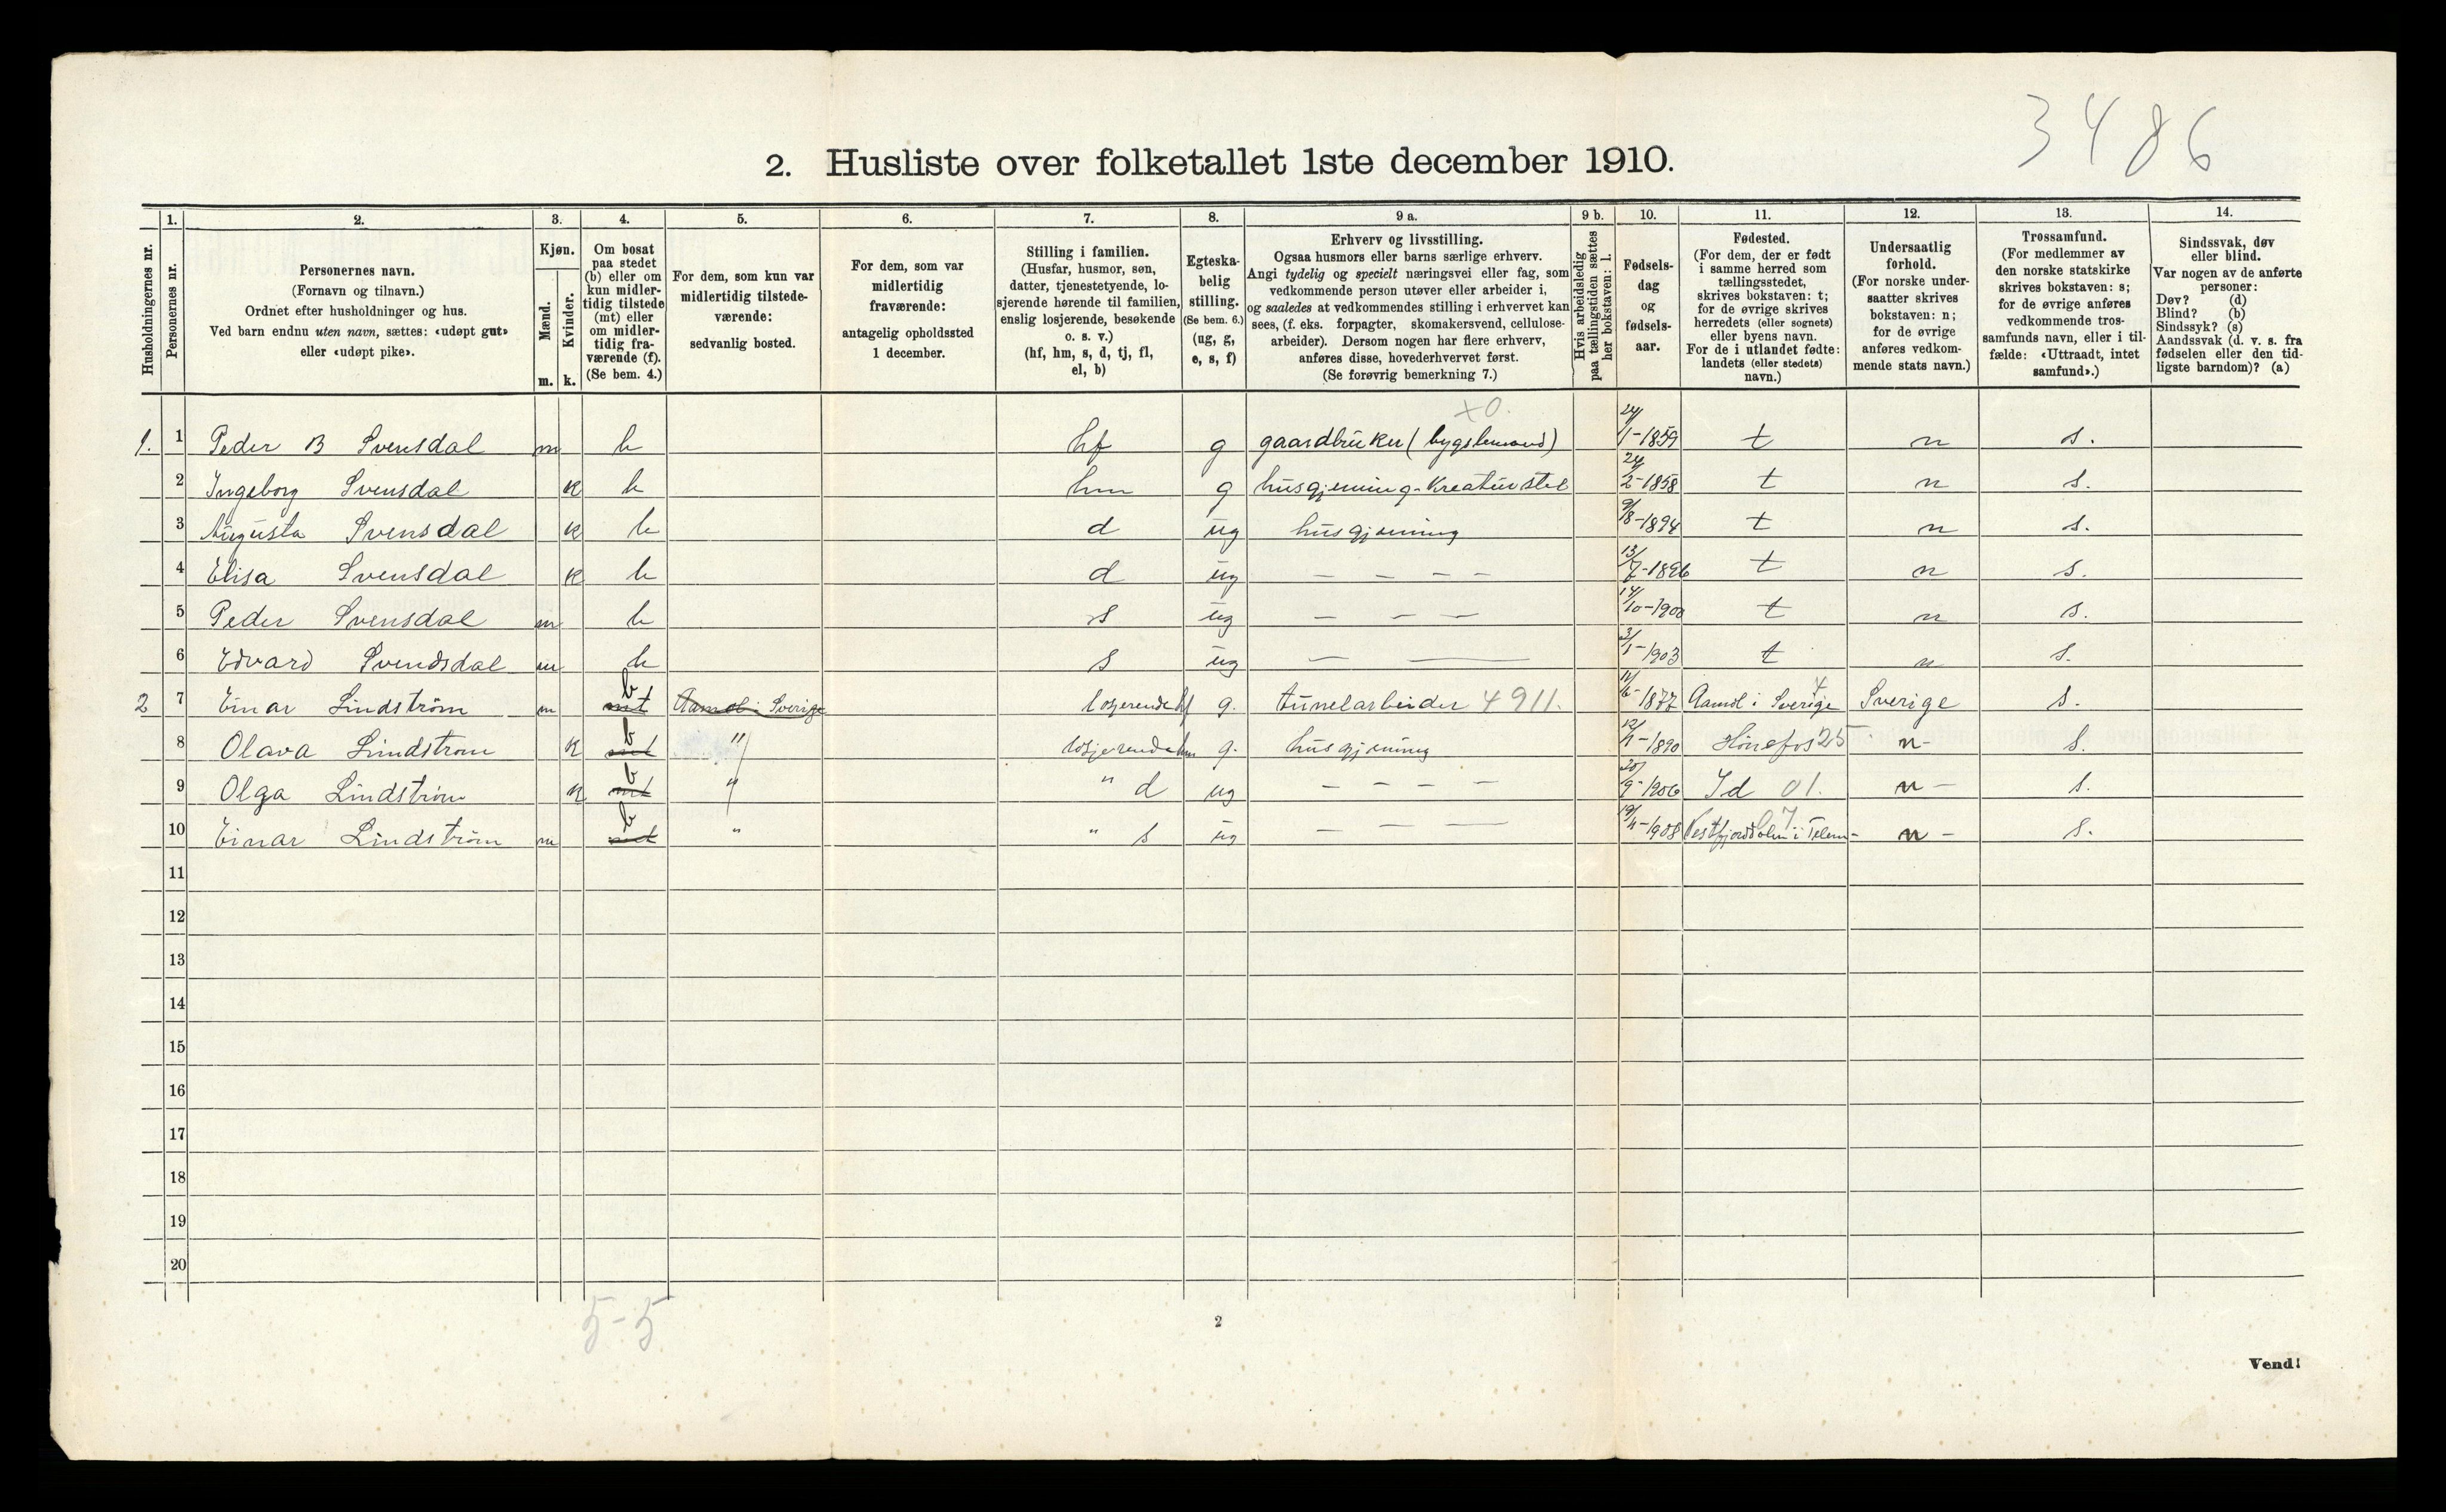 3486
2. Husliste over folketallet 1ste december 1910.
Husholdningernes nr.
1. Personernes nr.
2. Personernes navn.
(Fornavn og tilnavn.)
Ordnet efter husholdninger og hus.
Ved barn endnu uten navn, sættes: «udøpt gut»
eller «udøpt pike».
3. Kjøn.
Mænd. m.
Kvinder. k.
4. Om bosat
paa stedet
(b) eller om
kun midler-
tidig tilstede
(mt) eller
om midler-
tidig fra-
værende (f).
(Se bem. 4.)
5. For dem, som kun var
midlertidig tilstede-
værende:
sedvanlig bosted.
6. For dem, som var
midlertidig
fraværende:
antagelig opholdssted
1 december.
7. Stilling i familien.
(Husfar, husmor, søn,
datter, tjenestetyende, lo-
sjerende hørende til familien,
enslig losjerende, besøkende
o. s. v.)
(hf, hm, s, d, tj, fl,
el, b)
8. Egteska-
belig
stilling.
(Se bem. 6.)
(ug, g,
e, s, f)
9 a. Erhverv og livsstilling.
Ogsaa husmors eller barns særlige erhverv.
Angi tydelig og specielt næringsvei eller fag, som
vedkommende person utøver eller arbeider i,
og saaledes at vedkommendes stilling i erhvervet kan
sees, (f. eks. forpagter, skomakersvend, cellulose-
arbeider). Dersom nogen har flere erhverv,
anføres disse, hovederhvervet først.
(Se forøvrig bemerkning 7.)
9 b. Hvis arbeidsledig
paa tællingstiden sættes
her bokstaven: l.
10. Fødsels-
dag
og
fødsels-
aar.
11. Fødested.
(For dem, der er født
i samme herred som
tællingsstedet,
skrives bokstaven: t;
for de øvrige skrives
herredets (eller sognets)
eller byens navn.
For de i utlandet fødte:
landets (eller stedets)
navn.)
12. Undersaatlig
forhold.
(For norske under-
saatter skrives
bokstaven: n;
for de øvrige
anføres vedkom-
mende stats navn.)
13. Trossamfund.
(For medlemmer av
den norske statskirke
skrives bokstaven: s;
for de øvrige anføres
vedkommende tros-
samfunds navn, eller i til-
fælde: «Uttraadt, intet
samfund».)
14. Sindssvak, døv
eller blind.
Var nogen av de anførte
personer:
Døv? (d)
Blind? (b)
Sindssyk? (s)
Aandssvak (d. v. s. fra
fødselen eller den tid-
ligste barndom)? (a)
x0.
1. 1 Peder B Svensdal m b hf g gaardbruker (bygselmand) 24/1-1859 t n s.
2 Ingeborg Svensdal k b hm g husgjerning - Kreaturstel 24/2-1858 t n s.
3 Augusta Svensdal k b d ug husgjerning 9/8-1894 t n s.
4 Elisa Svensdal k b d ug - - - - 13/7-1896 t n s.
5 Peder Svensdal m b s ug - - - 14/10-1900 t n s.
6 Edvard Svendsdal m b s ug - - 3/1-1903 t n s.
2 7 Einar Lindstrøm m mt b Aamol i Sverige losjerende hf g. tunelarbeider 4911. 11/6-1877 Aamol i Sverige 4 Sverige s.
8 Olava Lindstrøm k mt b " losjerende hm g. husgjerning 12/1-1890 Hønefos 25 n- s.
9 Olga Lindstrøm k mt b " " d ug - - - - 20/9-1906 Id 01. n- s.
10 Einar Lindstrøm m mt b " " s ug - - - 19/11-1908 Vestfjorddalen i Telem- 7 n- s.
11
12
13
14
15
16
17
18
19
20
5-5
2
Vend!